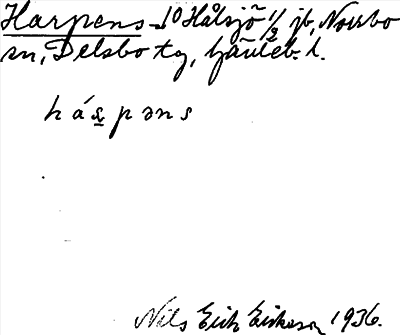 Harpens 10 Hålsjö 1/2 jb, Norrbo
sn, Delsbo tg, Gävleb. l.
há𝑟pəns
Nils Erik Eriksson 1936.